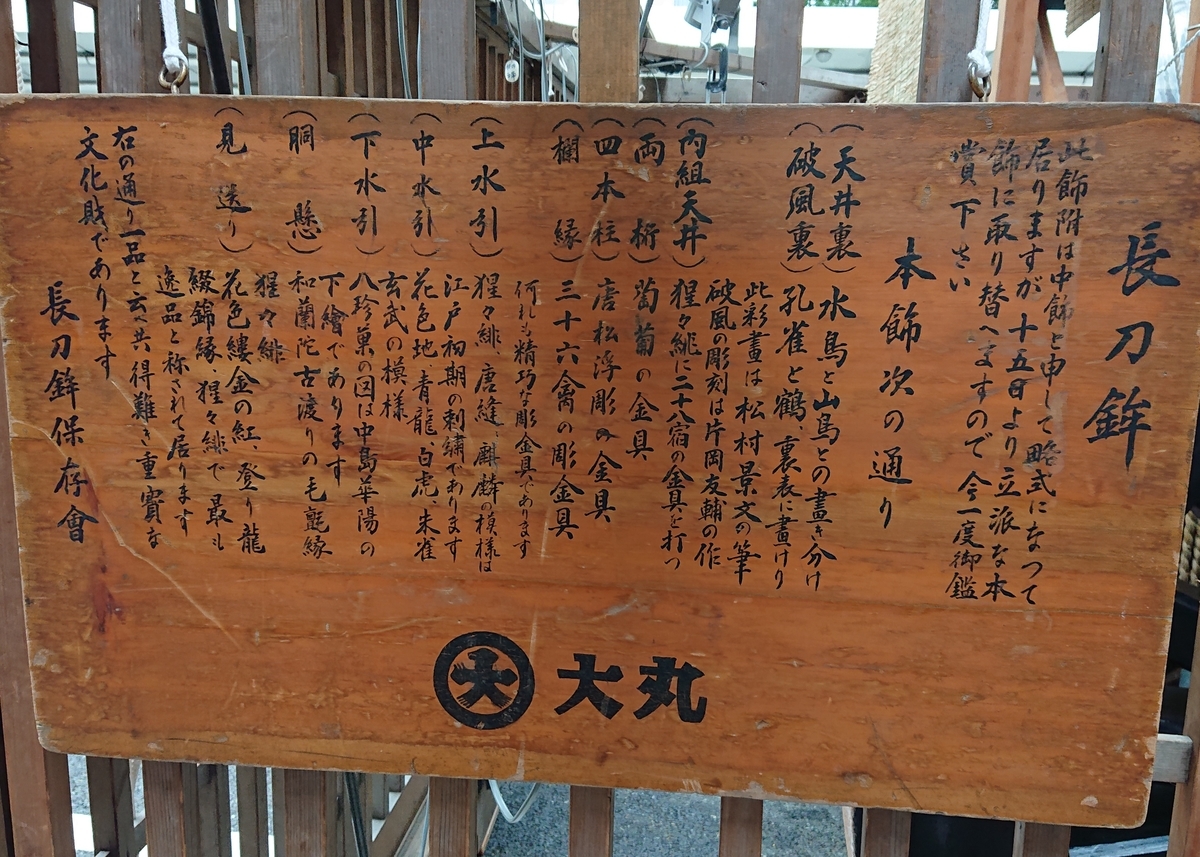 長刀鉾
此飾附は中飾と申して略式になつて
居りますが十五日より立派な本
飾に取り替へますので今一度御鑑
賞下さい
本飾次の通り
(天井裏)水鳥と山鳥との畫き分け
(破風裏)孔雀と鶴、裏表に畫けり
此彩畫は松村景文の筆
破風の彫刻は片岡友輔の作
(内組天井)猩々緋に二十八宿の金具を打つ
(両桁)蔔菊の金具
(四本柱)唐松浮彫の金具
(欄縁)三十六禽の彫金具
何れも精巧な彫金具であります
(上水引)猩々緋、唐縫、麒麟の模様は
江戸初期の刺繍であります
(中水引)花色地、青龍、白虎、朱雀
玄武の模様
(下水引)八珍菓の図は中島華陽の
下繪であります
(胴懸)和蘭陀古渡りの毛氈縁
猩々緋
(見送り)花色縷金の紅、登り龍
綴錦縁、猩々緋で最も
逸品と称されて居ります
右の通り一品と云へ共得難き重寳な
文化財であります
長刀鉾保存會
大丸